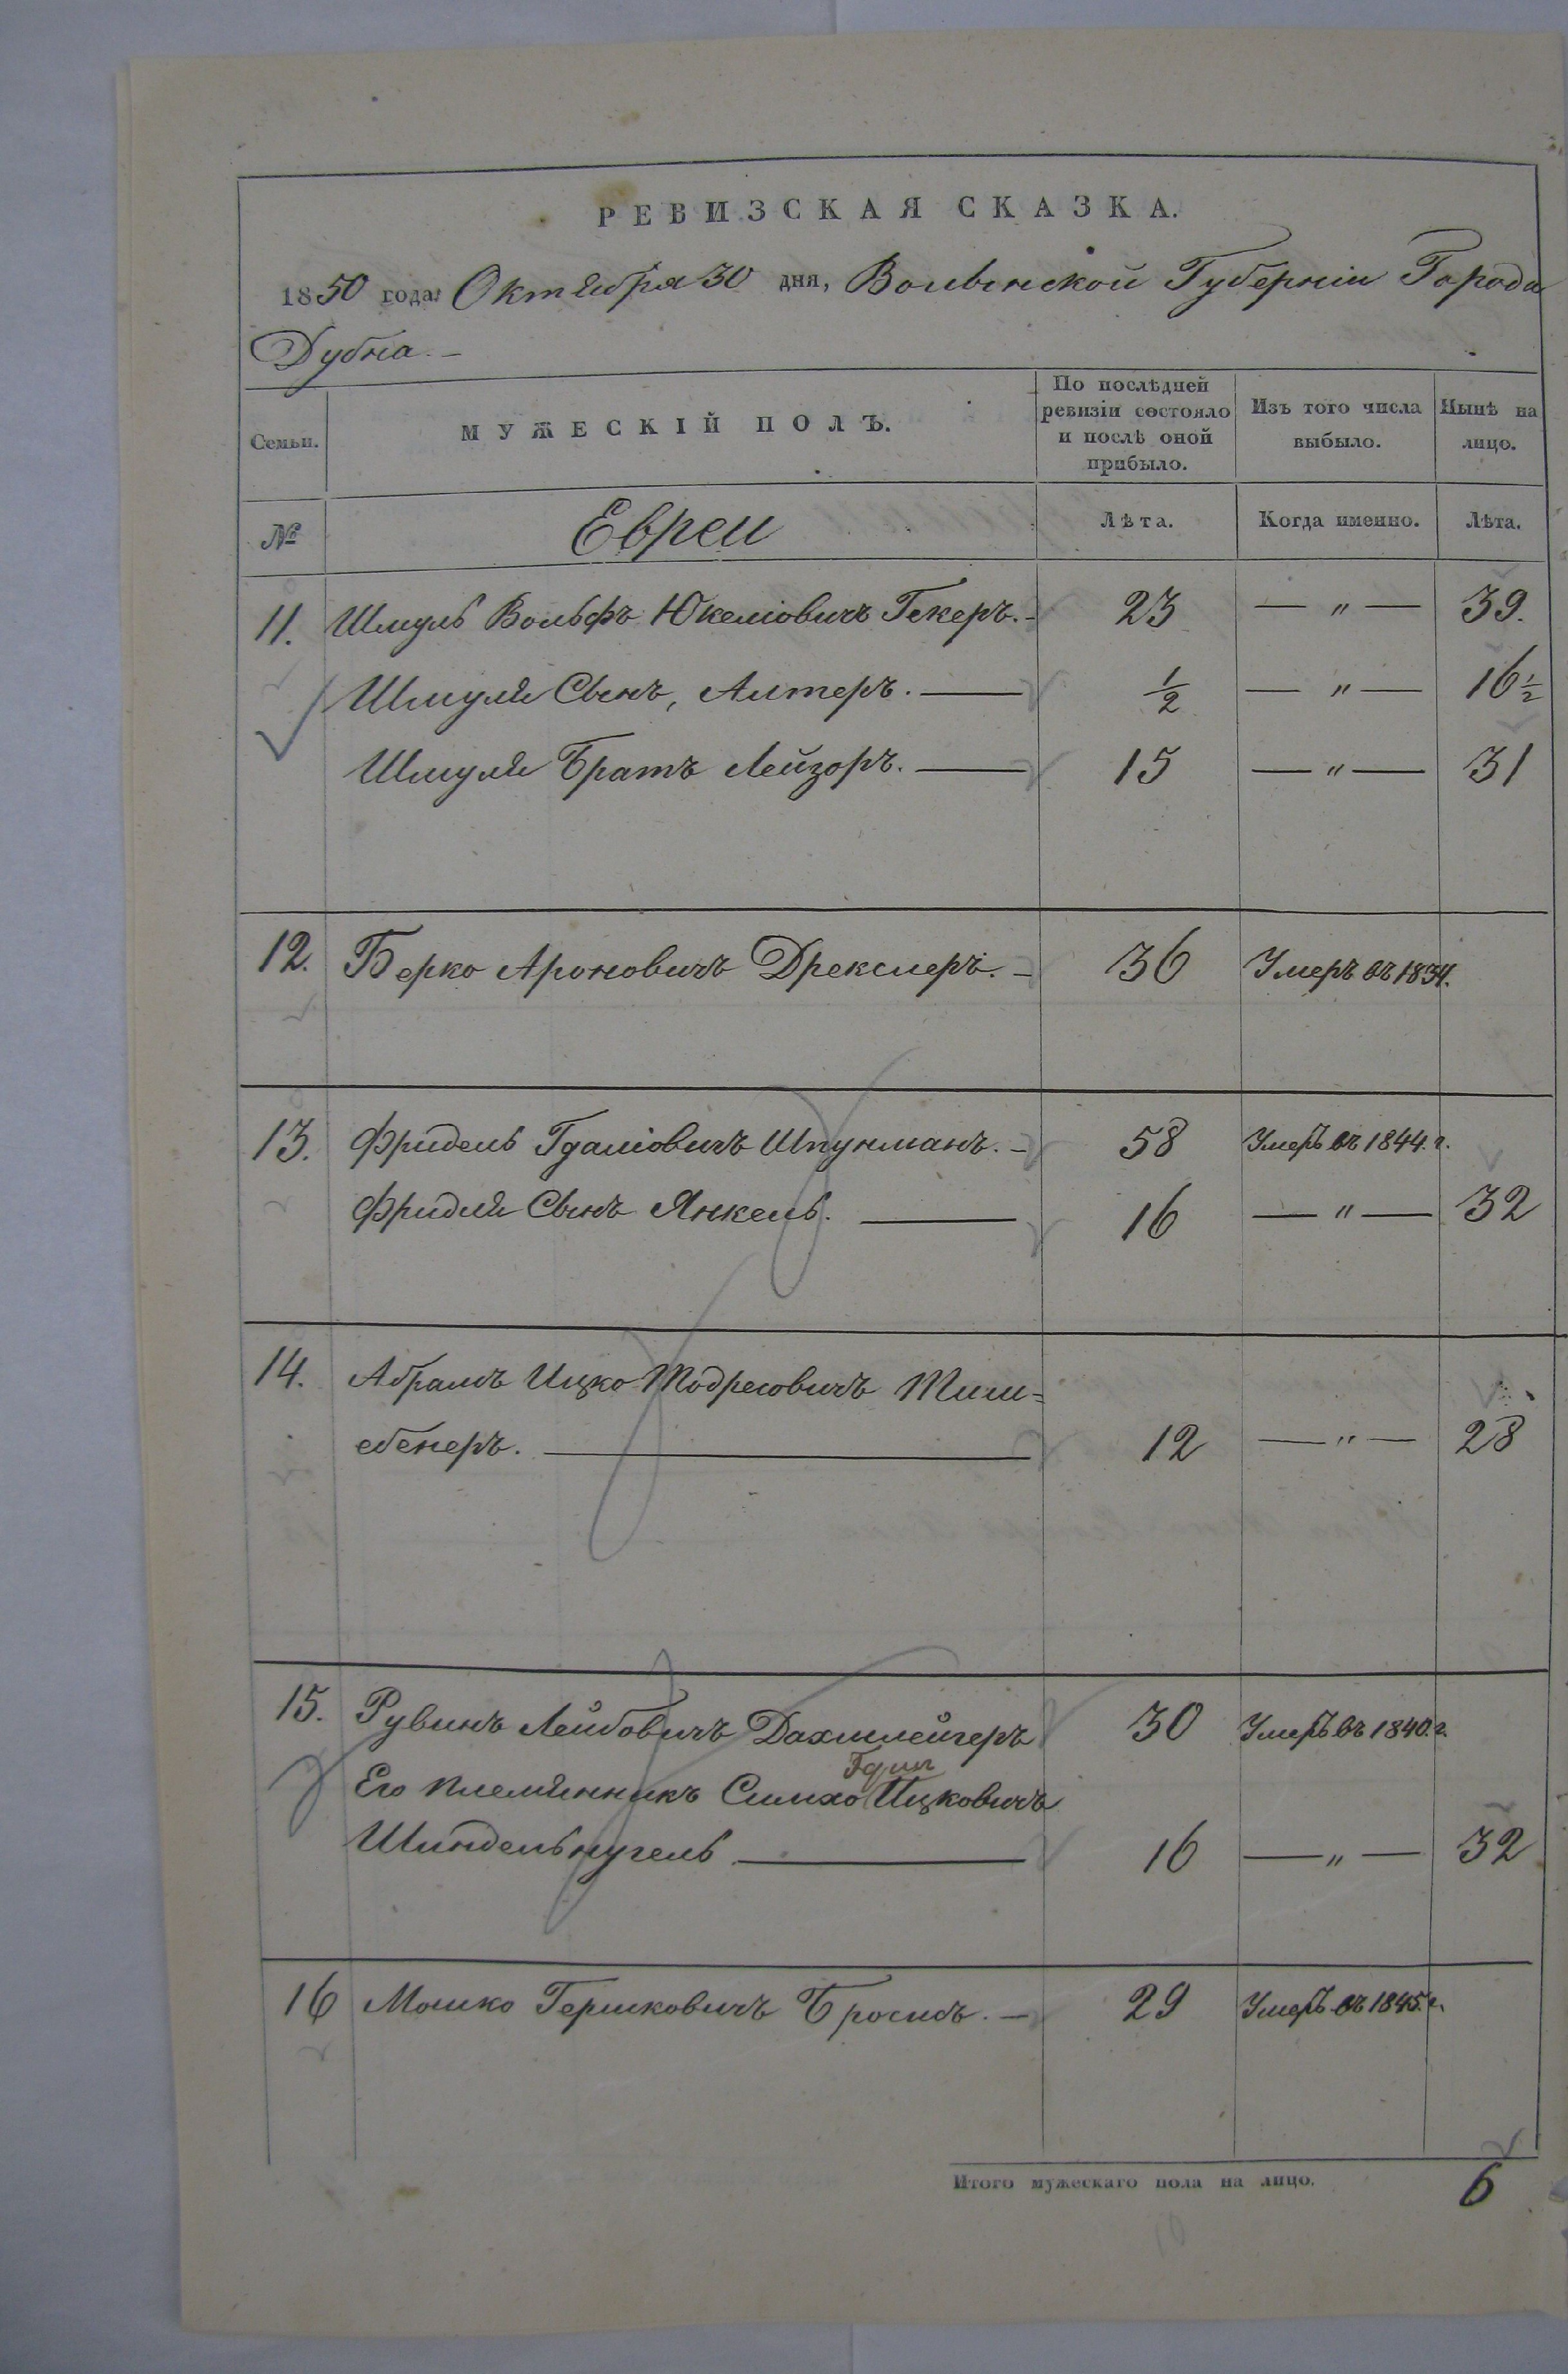 РЕВИЗСКАЯ СКАЗКА.
1850 года Октября 30 дня, Волынской Губерніи Города
Дубна.
Семьи.
МУЖЕСКІЙ ПОЛЪ.
По послѣдней ревизіи состояло и послѣ оной прибыло.
Изъ того числа выбыло.
Нынѣ на лицо.
№ Евреи Лѣта. Когда именно. Лѣта.
11. Шмуль Вольфъ Юкеліовичъ Гекеръ. 23 — " — 39.
Шмуля Сынъ, Алтеръ. — 1/2 — " — 16 1/2
Шмуля Братъ Лейзоръ. — 15 — " — 31
12. Берко Ароновичъ Дрекслеръ. — 36 Умеръ въ 1834.
13. Фридель Гдаліовичъ Шпунманъ. — 58 Умеръ въ 1844. г.
Фридля Сынъ Янкель. — 16 — " — 32
14. Абрамъ Ицко Тодресовичъ Тиш=
ебенеръ. — 12 — " — 28
15. Рувинъ Лейбовичъ Дахшлейгеръ 30 Умеръ въ 1840. г.
Его племянникъ Симхо Ицковичъ
Шиндельнугель — 16 — " — 32
16 Мошко Гершковичъ 29 Умеръ въ 1845. г.
Итого мужескаго пола на лицо. 6